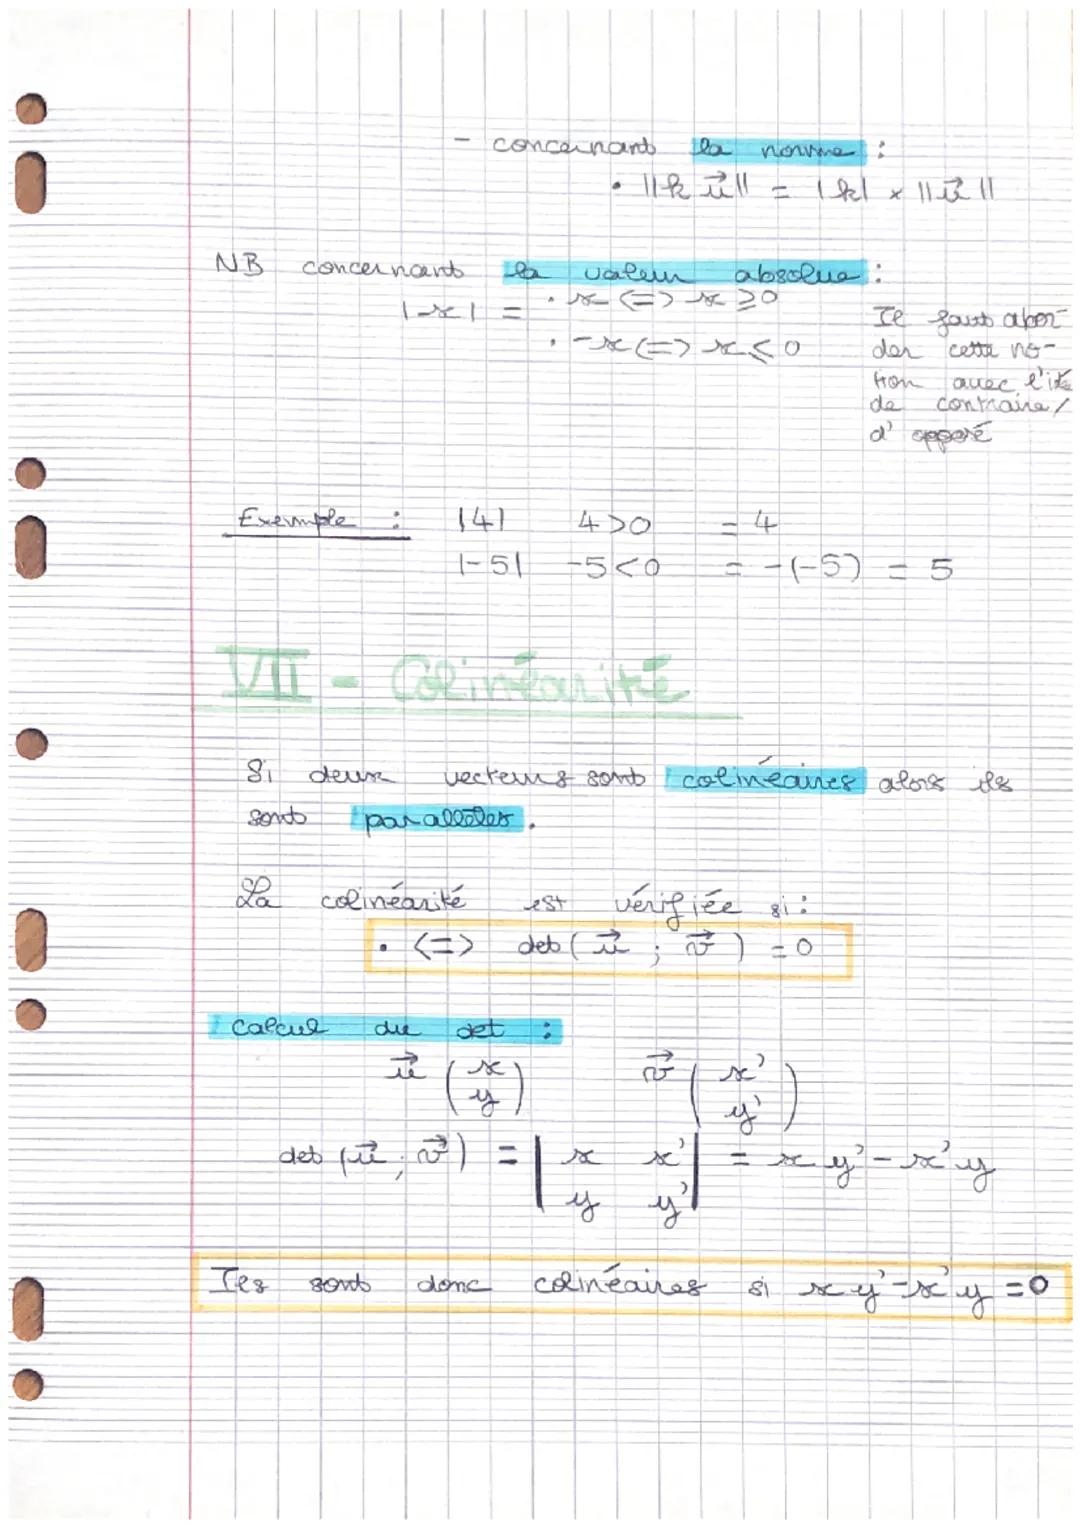 - concernant la norme :
• ||k u⃗|| = |k| × ||u⃗||
NB concernant la valeur absolue :
|-x| = • x <=> x ⩾ 0
• -x <=> x ⩽ 0
Il faut abor-
der cette no-
tion avec l'idée
de contraire /
d'opposé
Exemple : |4| 4>0 = 4
|-5| -5<0 = -(-5) = 5
VII - Colinéarité
Si deux vecteurs sont colinéaires alors ils
sont parallèles.
La colinéarité est vérifiée si :
• <=> det (u⃗ ; v⃗) = 0
Calcul du det :
u⃗ (x y) v⃗ (x' y')
det (u⃗ ; v⃗) = |x x' y y'| = x y' - x' y
Ils sont donc colinéaires si x y' - x' y = 0